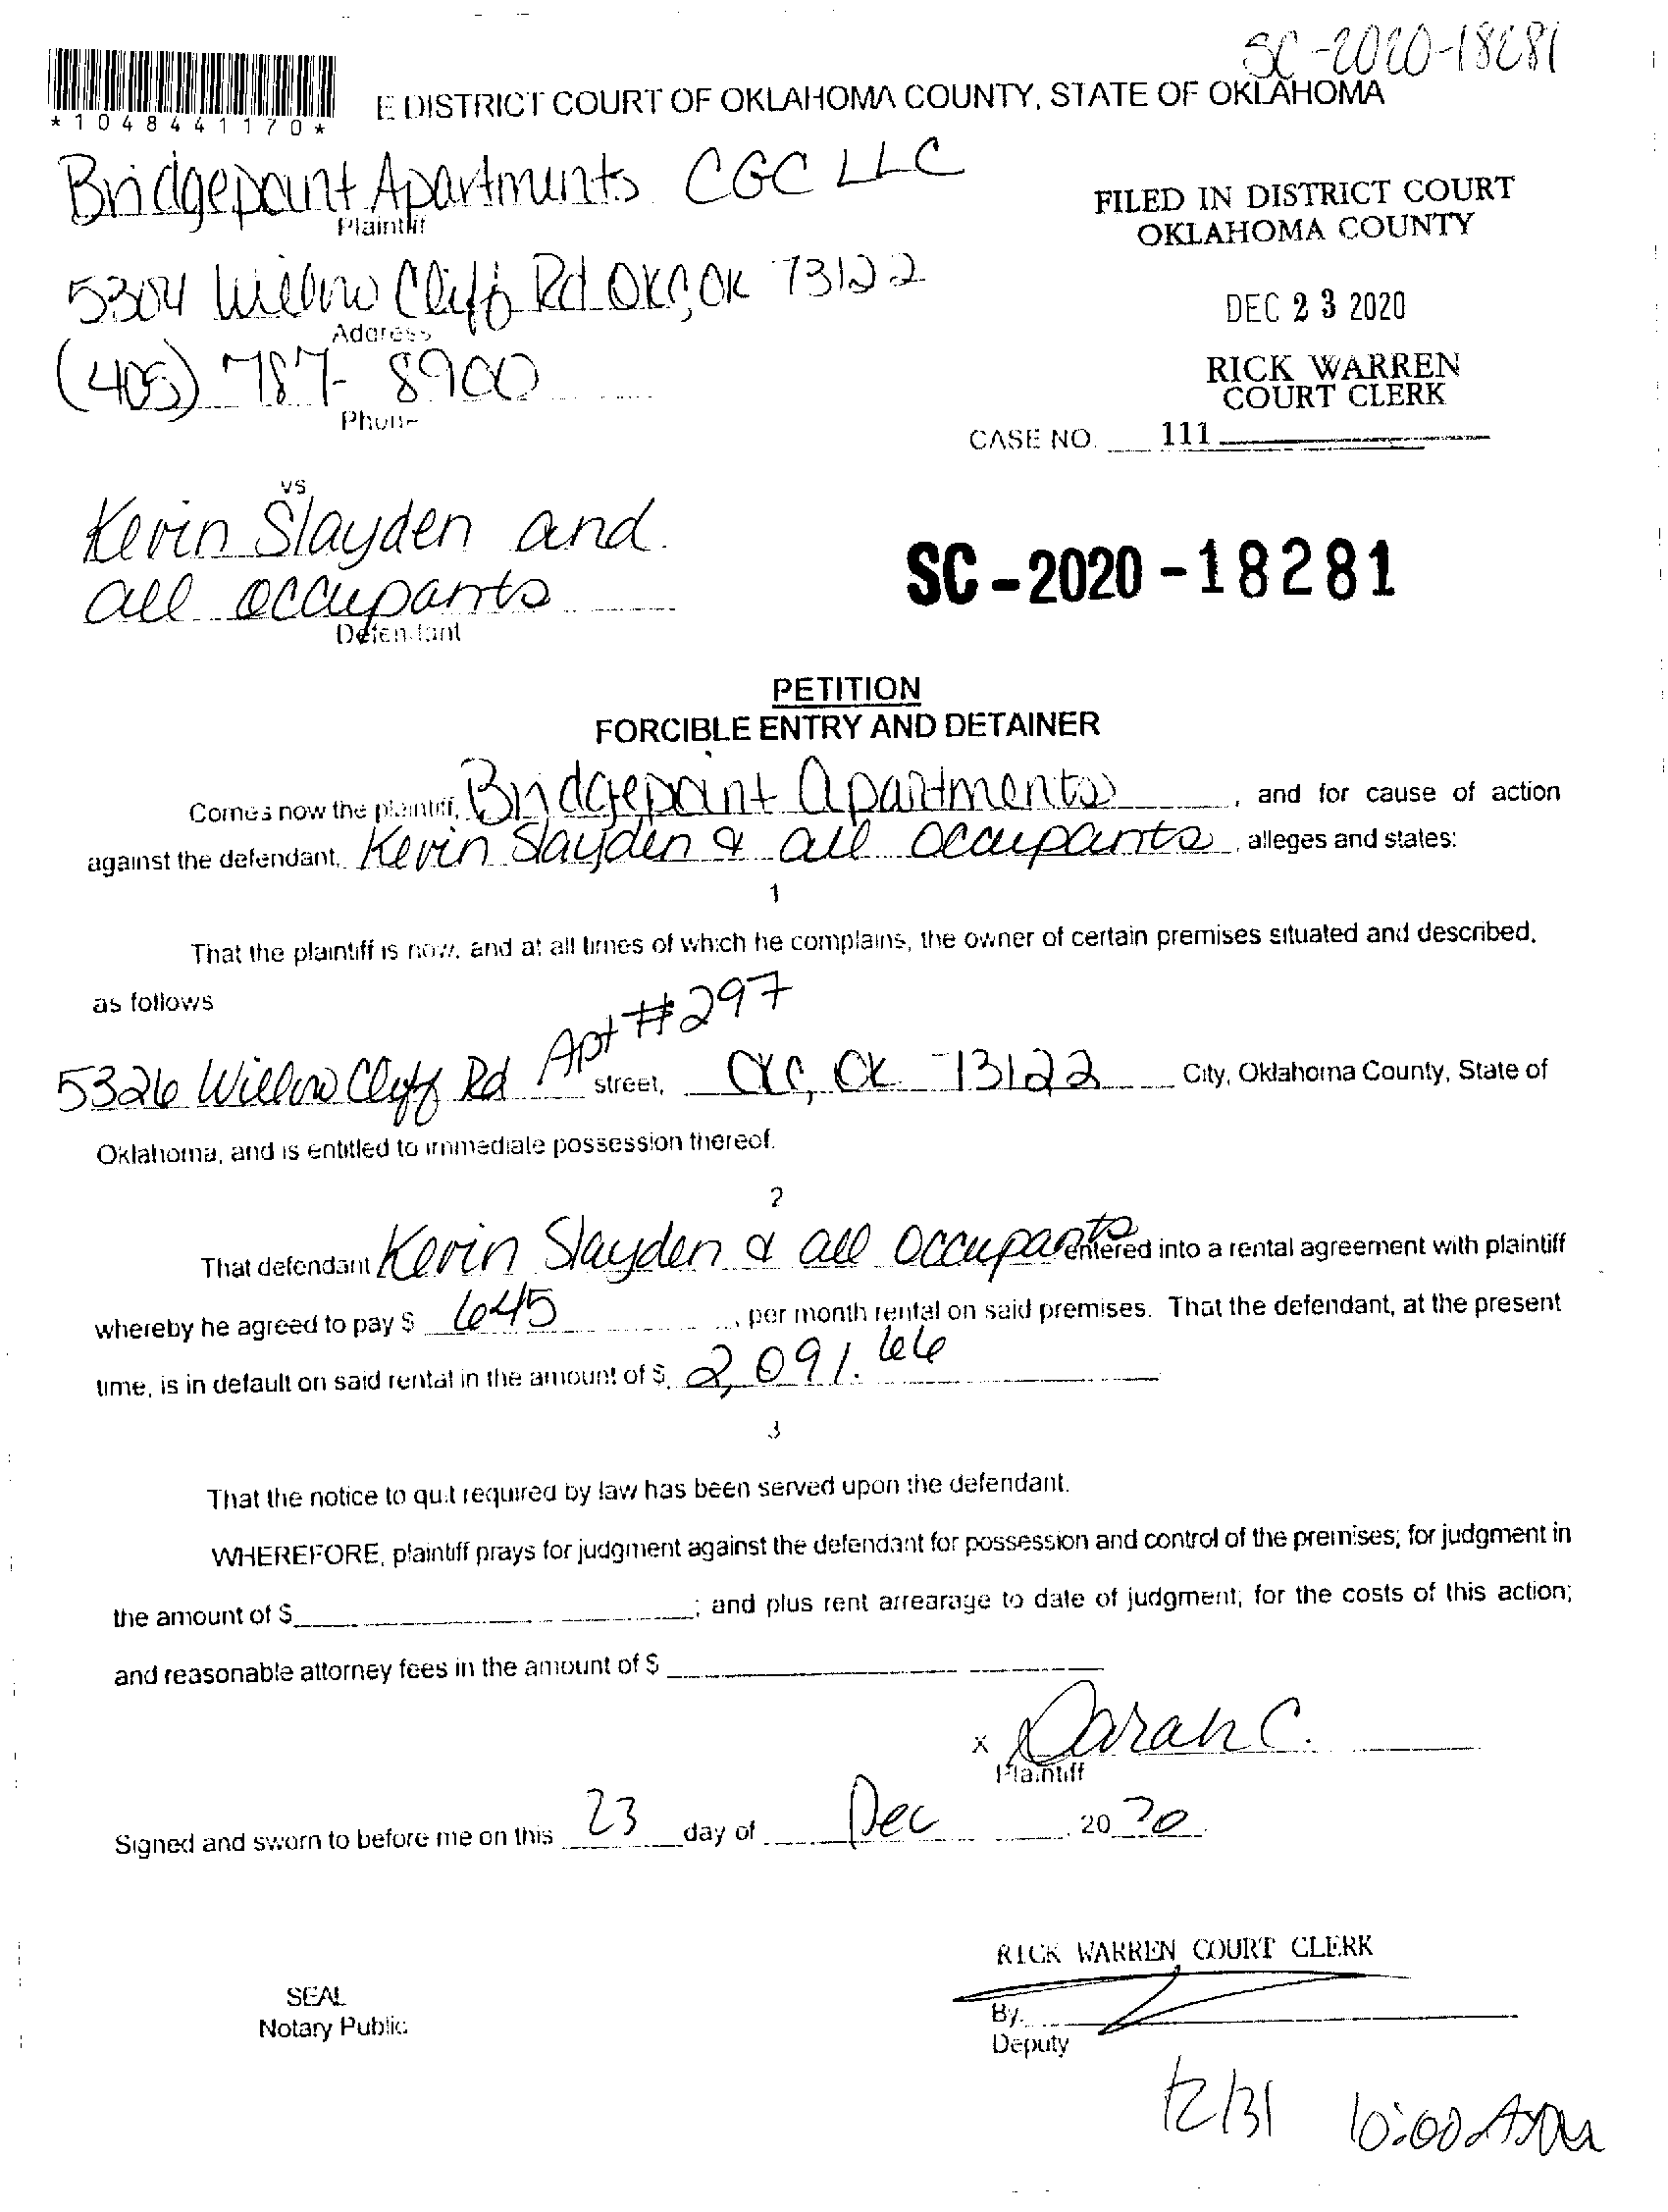 SC-2020-18281
*1048441170*
E DISTRICT COURT OF OKLAHOMA COUNTY, STATE OF OKLAHOMA
Bridgepoint Apartments CGC LLC
Plaintiff
FILED IN DISTRICT COURT
OKLAHOMA COUNTY
5304 Willow Cliff Rd OKC, OK 73122
Address
DEC 23 2020
(405) 787-8900
Phone
RICK WARREN
COURT CLERK
CASE NO. 111
vs
Kevin Slayden and
all occupants
Defendant
SC-2020-18281
PETITION
FORCIBLE ENTRY AND DETAINER
Comes now the plaintiff, Bridgepoint Apartments, and for cause of action
against the defendant, Kevin Slayden & all occupants, alleges and states:
1
That the plaintiff is now, and at all times of which he complains, the owner of certain premises situated and described,
as follows
5326 Willow Cliff Rd Apt #297 street, OKC, OK 73122 City, Oklahoma County, State of
Oklahoma, and is entitled to immediate possession thereof.
2
That defendant Kevin Slayden & all occupants entered into a rental agreement with plaintiff
whereby he agreed to pay $ 645, per month rental on said premises. That the defendant, at the present
time, is in default on said rental in the amount of $ 2,091.66
3
That the notice to quit required by law has been served upon the defendant.
WHEREFORE, plaintiff prays for judgment against the defendant for possession and control of the premises; for judgment in
the amount of $ ; and plus rent arrearage to date of judgment; for the costs of this action;
and reasonable attorney fees in the amount of $
x Sarah C.
Plaintiff
Signed and sworn to before me on this 23 day of Dec, 2020
RICK WARREN COURT CLERK
SEAL
Notary Public
By
Deputy
12/31 10:00 AM